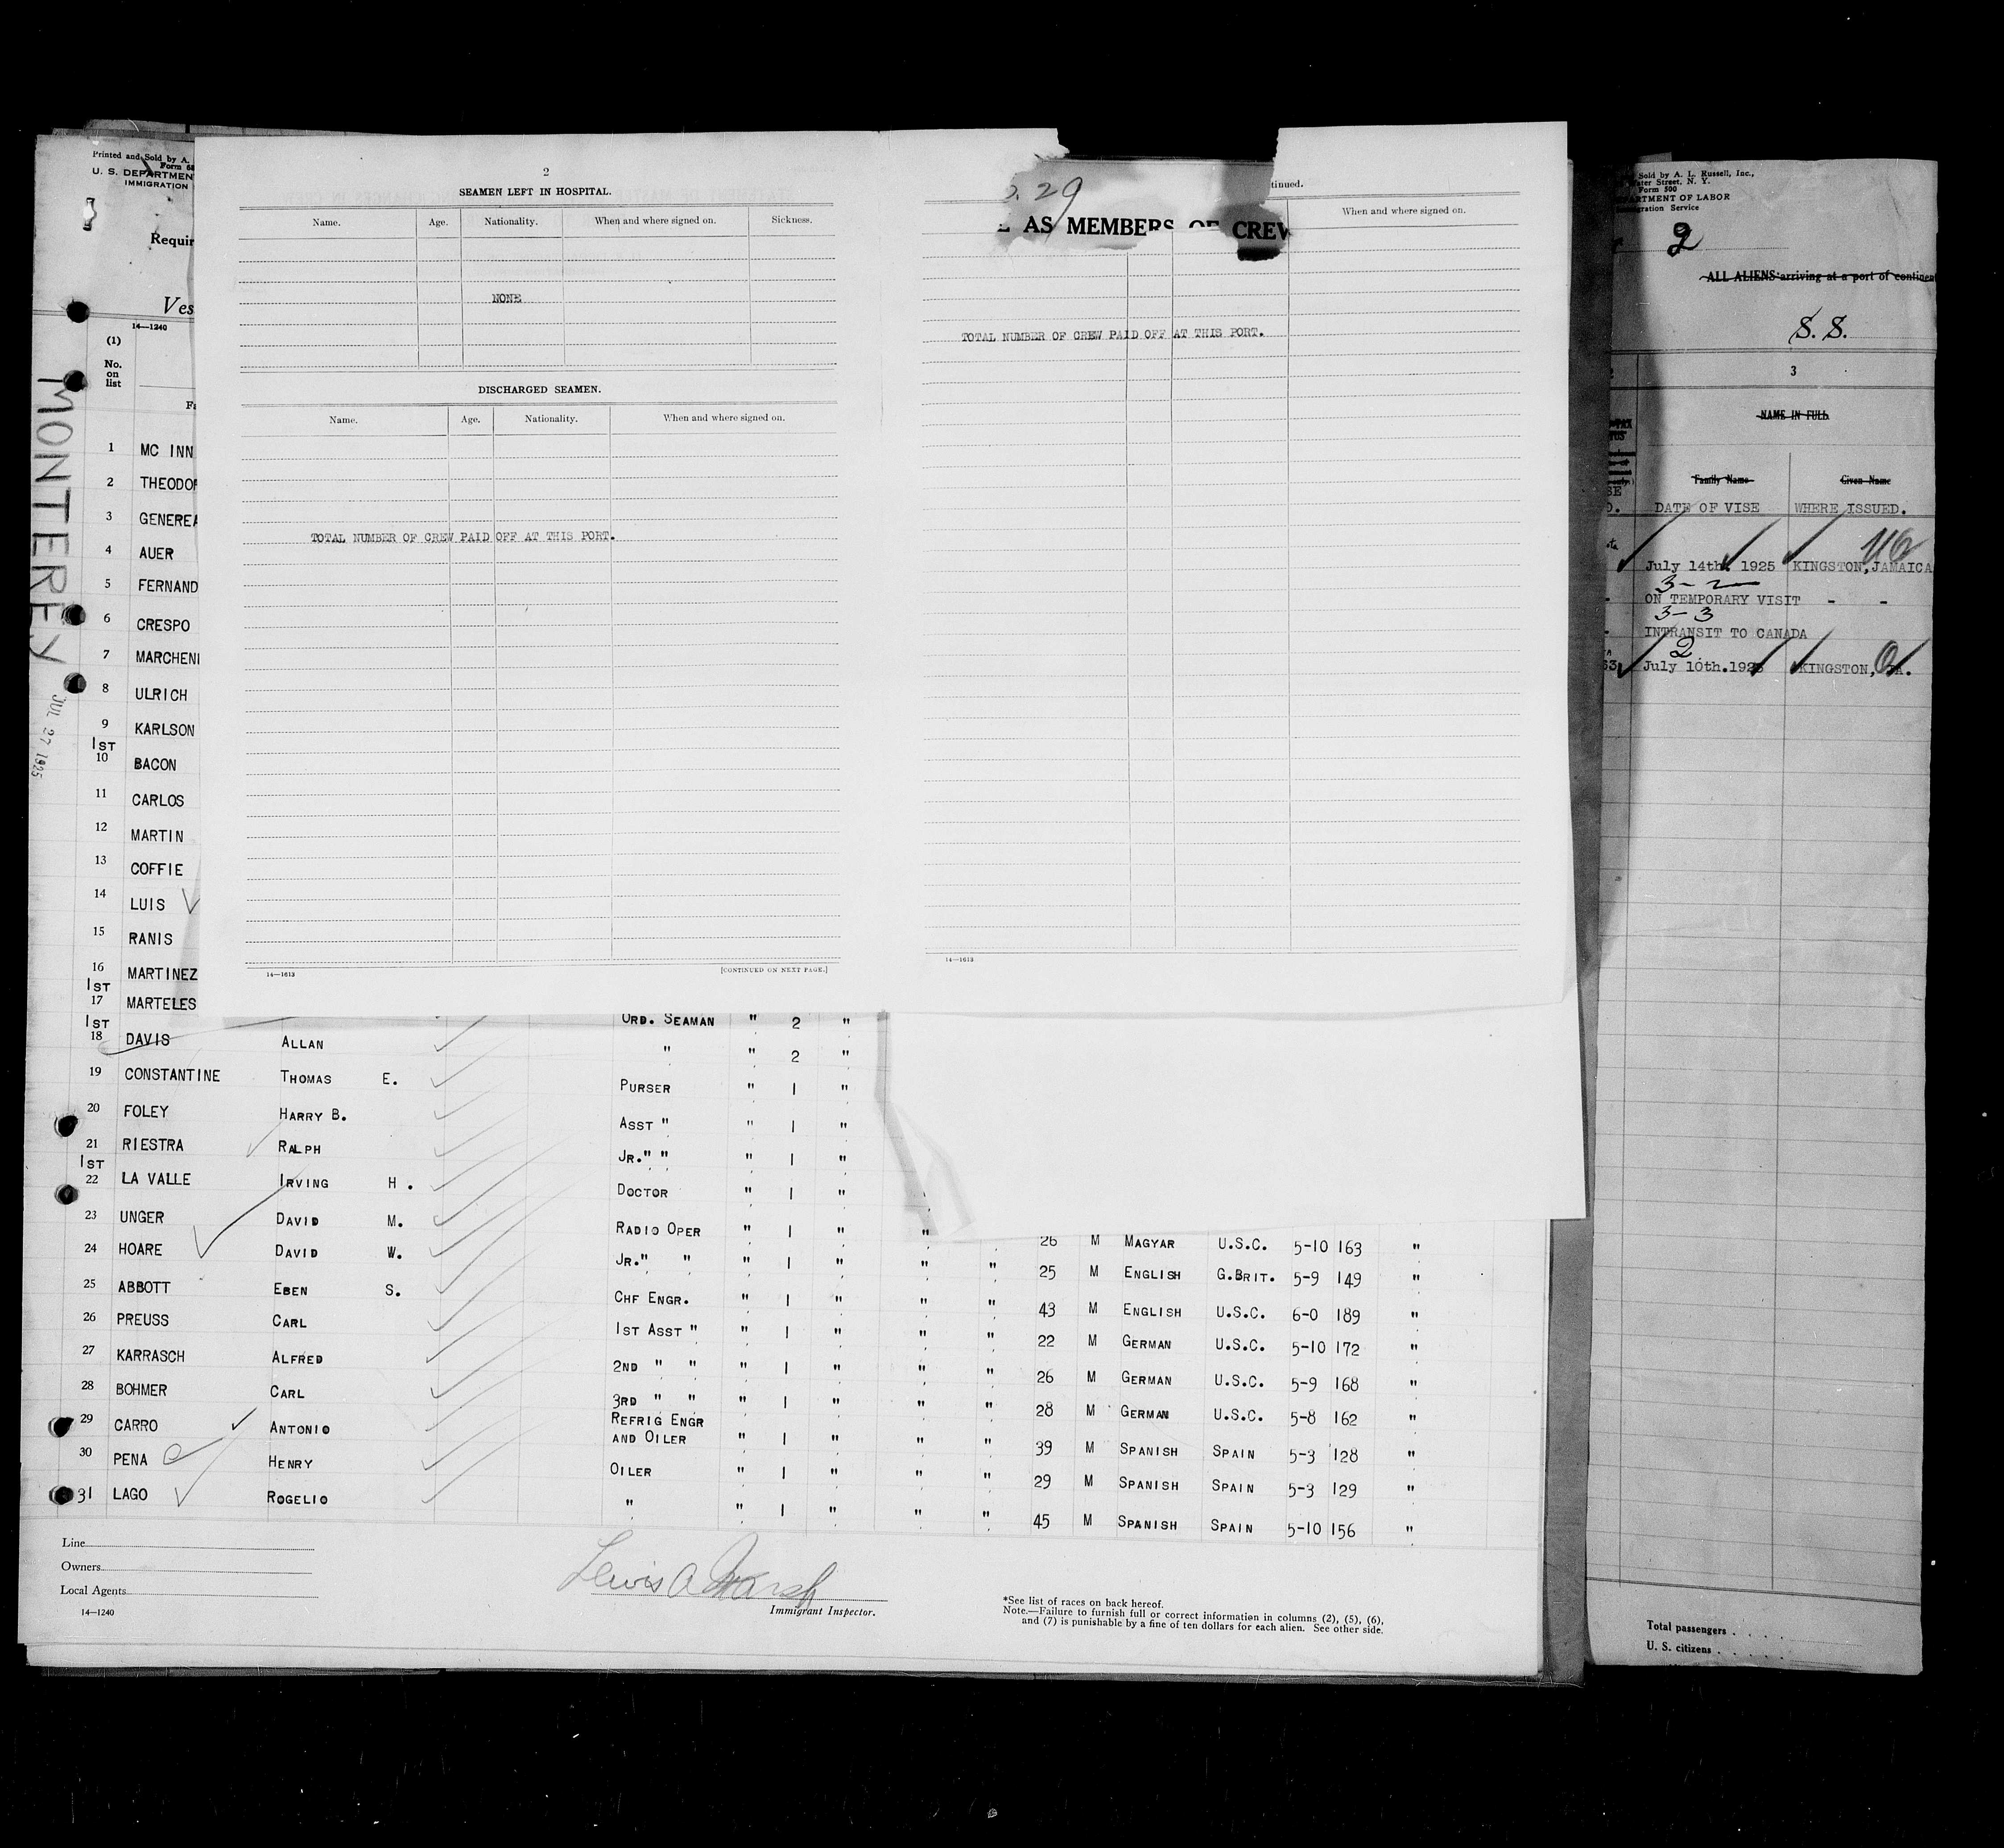 Printed and Sold by A.
Form 68
U. S. DEPARTMEN
IMMIGRATION
Requir
Ves
14—1240
(1)
No.
on
list
MONTEREY
JUL 27 1925
2
SEAMEN LEFT IN HOSPITAL.
Name. Age. Nationality. When and where signed on. Sickness.
NONE
DISCHARGED SEAMEN.
Name. Age. Nationality. When and where signed on.
TOTAL NUMBER OF CREW PAID OFF AT THIS PORT.
14—1613 [CONTINUED ON NEXT PAGE.]
29
tinued.
AS MEMBERS OF CREW
When and where signed on.
TOTAL NUMBER OF CREW PAID OFF AT THIS PORT.
14—1613
1 MC INN
2 THEODOR
3 GENEREA
4 AUER
5 FERNAND
6 CRESPO
7 MARCHENI
8 ULRICH
9 KARLSON
1ST
10 BACON
11 CARLOS
12 MARTIN
13 COFFIE
14 LUIS
15 RANIS
16 MARTINEZ
1ST
17 MARTELES ORD. SEAMAN " 2 "
1ST
18 DAVIS ALLAN " " 2 "
19 CONSTANTINE THOMAS E. PURSER " 1 "
20 FOLEY HARRY B. ASST " " 1 "
21 RIESTRA RALPH JR." " " 1 "
1ST
22 LA VALLE IRVING H. DOCTOR " 1 "
23 UNGER DAVID M. RADIO OPER " 1 " " 26 M MAGYAR U.S.C. 5-10 163 "
24 HOARE DAVID W. JR." " " 1 " " " 25 M ENGLISH G.BRIT. 5-9 149 "
25 ABBOTT EBEN S. CHF ENGR. " 1 " " " 43 M ENGLISH U.S.C. 6-0 189 "
26 PREUSS CARL 1ST ASST " " 1 " " " 22 M GERMAN U.S.C. 5-10 172 "
27 KARRASCH ALFRED 2ND " " " 1 " " " 26 M GERMAN U.S.C. 5-9 168 "
28 BOHMER CARL 3RD " " " 1 " " " 28 M GERMAN U.S.C. 5-8 162 "
REFRIG ENGR
29 CARRO ANTONIO AND OILER " 1 " " " 39 M SPANISH SPAIN 5-3 128 "
30 PENA HENRY OILER " 1 " " " 29 M SPANISH SPAIN 5-3 129 "
31 LAGO ROGELIO " " 1 " " " 45 M SPANISH SPAIN 5-10 156 "
Line
Owners
Local Agents
14—1240
Lewis A Marsh
Immigrant Inspector.
*See list of races on back hereof.
Note.—Failure to furnish full or correct information in columns (2), (5), (6),
and (7) is punishable by a fine of ten dollars for each alien. See other side.
Sold by A. L. Russell, Inc.,
Water Street, N. Y.
Form 500
PARTMENT OF LABOR
igration Service
2
ALL ALIENS arriving at a port of continen
S. S.
3
NAME IN FULL
Family Name Given Name
DATE OF VISE WHERE ISSUED.
July 14th 1925 KINGSTON, JAMAICA
3-2
ON TEMPORARY VISIT - -
3-3
INTRANSIT TO CANADA
2
July 10th.1925 KINGSTON, JA.
Total passengers
U. S. citizens